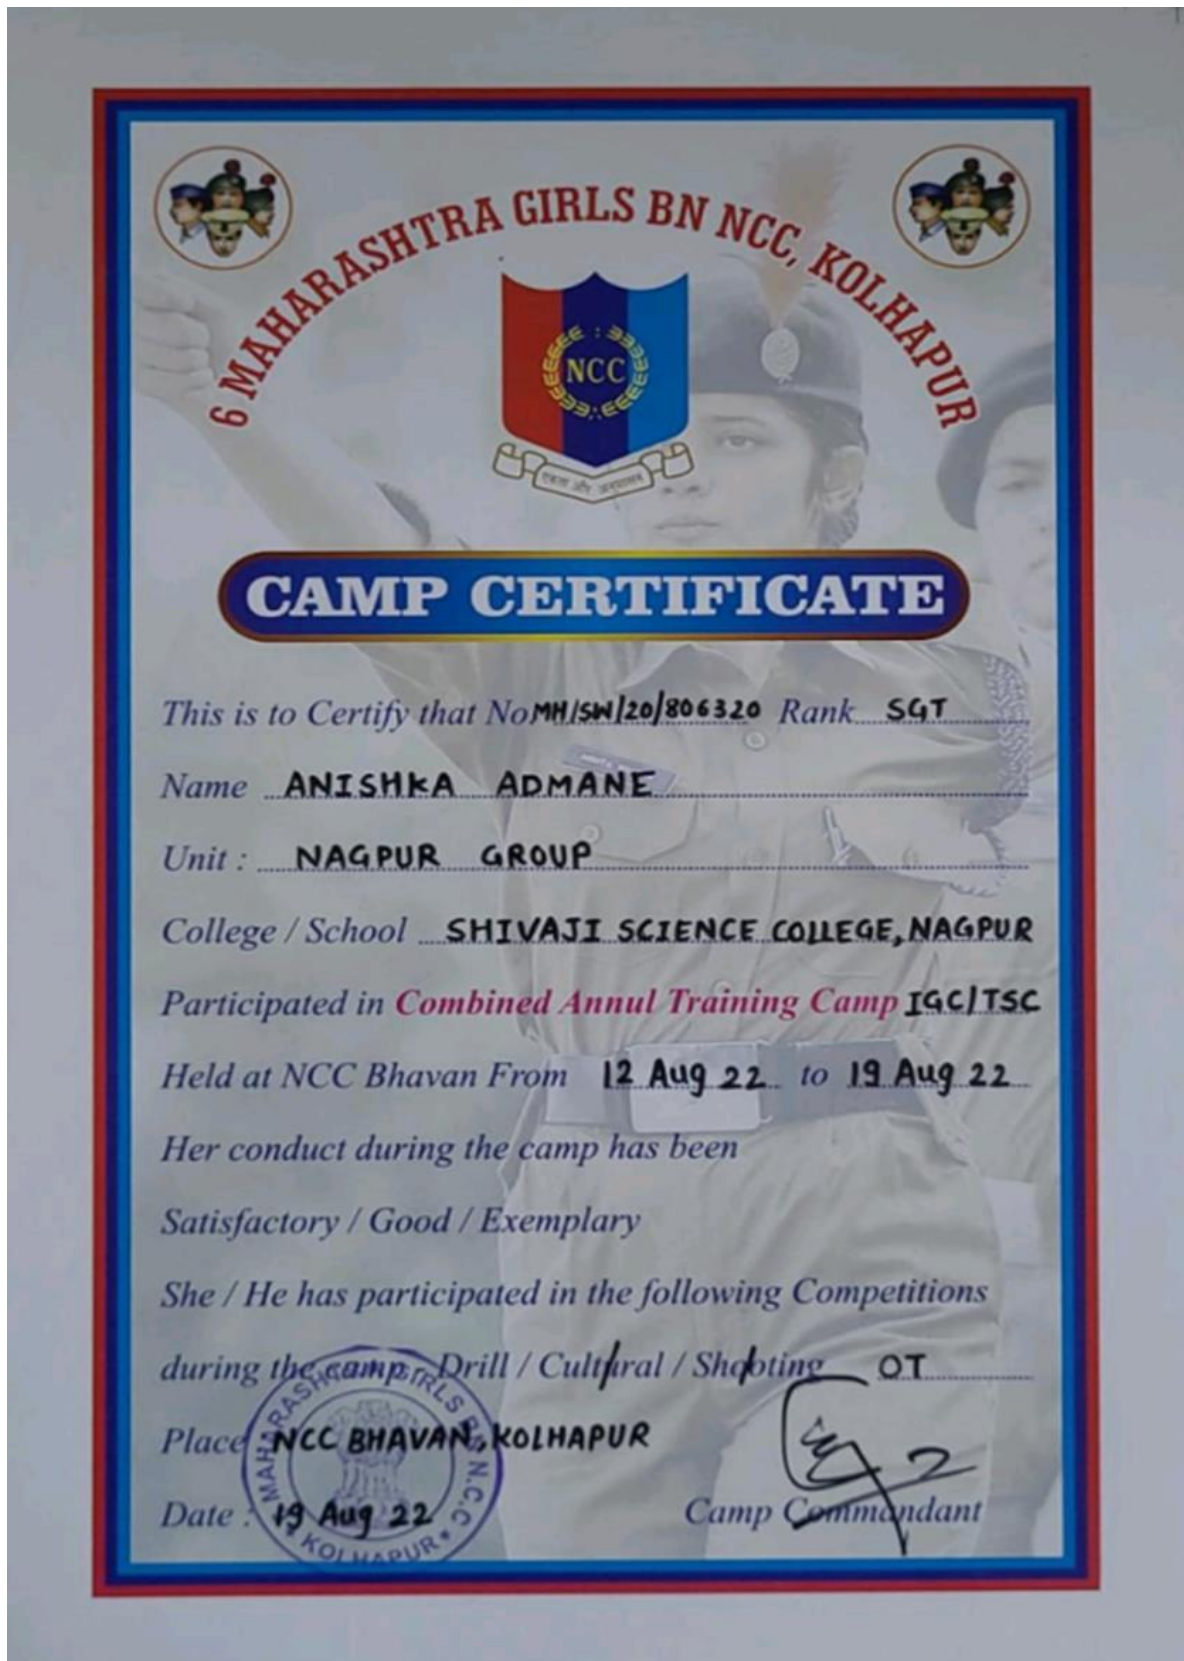 6 MAHARASHTRA GIRLS BN NCC, KOLHAPUR
NCC
एकता और अनुशासन
CAMP CERTIFICATE
This is to Certify that No MH/SW/20/806320 Rank SGT
Name ANISHKA ADMANE
Unit : NAGPUR GROUP
College / School SHIVAJI SCIENCE COLLEGE, NAGPUR
Participated in Combined Annul Training Camp IGC/TSC
Held at NCC Bhavan From 12 Aug 22 to 19 Aug 22
Her conduct during the camp has been
Satisfactory / Good / Exemplary
She / He has participated in the following Competitions
during the camp - Drill / Cultural / Shooting OT
Place NCC BHAVAN, KOLHAPUR
Date : 19 Aug 22 Camp Commandant
MAHARASHTRA GIRLS BN N.C.C
KOLHAPUR